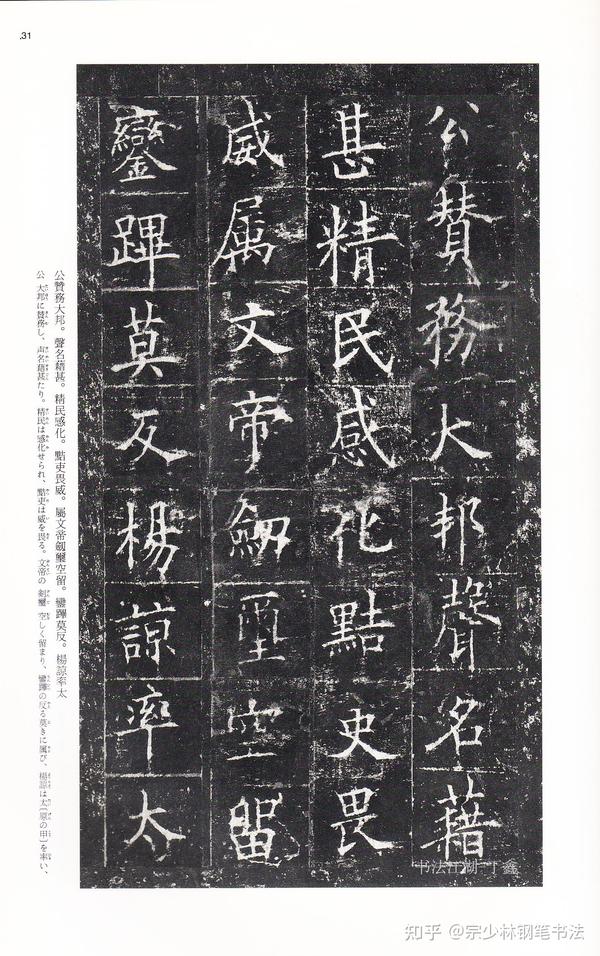 .31
公賛務大邦聲名藉
甚精民感化黠吏畏
威属文帝劒璽空留
鑾蹕莫反楊諒率太
公贊務大邦。聲名藉甚。精民感化。黠吏畏威。屬文帝劔璽空留。鑾蹕莫反。楊諒率太
公 大邦に賛務し、声名藉甚たり。精民は感化せられ、黠吏は威を畏る。文帝の 剣璽 空しく留まり、鑾蹕の反る莫きに属び、楊諒は太〔原の甲〕を率い、
书法江湖 丁鑫
知乎 @宗少林钢笔书法